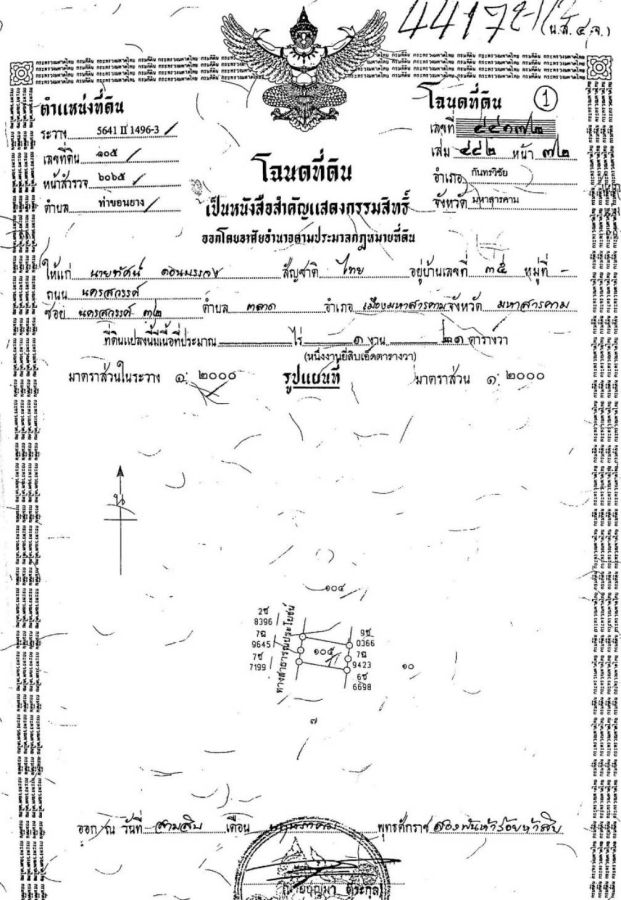 (น.ส. ๔ จ.)
ตำแหน่งที่ดิน
ระวาง 5641 II 1496-3
เลขที่ดิน ๑๐๕
หน้าสำรวจ ๖๐๖๕
ตำบล ท่าขอนยาง
โฉนดที่ดิน
เลขที่ ๔๔๑๗๒
เล่ม ๔๔๒ หน้า ๗๒
อำเภอ กันทรวิชัย
จังหวัด มหาสารคาม
1
โฉนดที่ดิน
เป็นหนังสือสำคัญแสดงกรรมสิทธิ์
ออกโดยอาศัยอำนาจตามประมวลกฎหมายที่ดิน
ให้แก่ นายทัศน์ สัญชาติ ไทย อยู่บ้านเลขที่ ๓๕ หมู่ที่ -
ถนน นครสวรรค์
ซอย นครสวรรค์ ๓๒ ตำบล ตลาด อำเภอ เมืองมหาสารคาม จังหวัด มหาสารคาม
ที่ดินแปลงนี้มีเนื้อที่ประมาณ - ไร่ ๑ งาน ๒๑ ตารางวา
(หนึ่งงานยี่สิบเอ็ดตารางวา)
มาตราส่วนในระวาง ๑: ๒๐๐๐ รูปแผนที่ มาตราส่วน ๑: ๒๐๐๐
น
๑๐๔
2ช
8396
7ฉ
9645
7ช
7199
ทางสาธารณประโยชน์
๑๐๕
9ช
0366
7ฉ
9423
6ช
6698
๑๐
๗
ออก ณ วันที่ สามสิบ เดือน พฤษภาคม พุทธศักราช สองพันห้าร้อยห้าสิบ